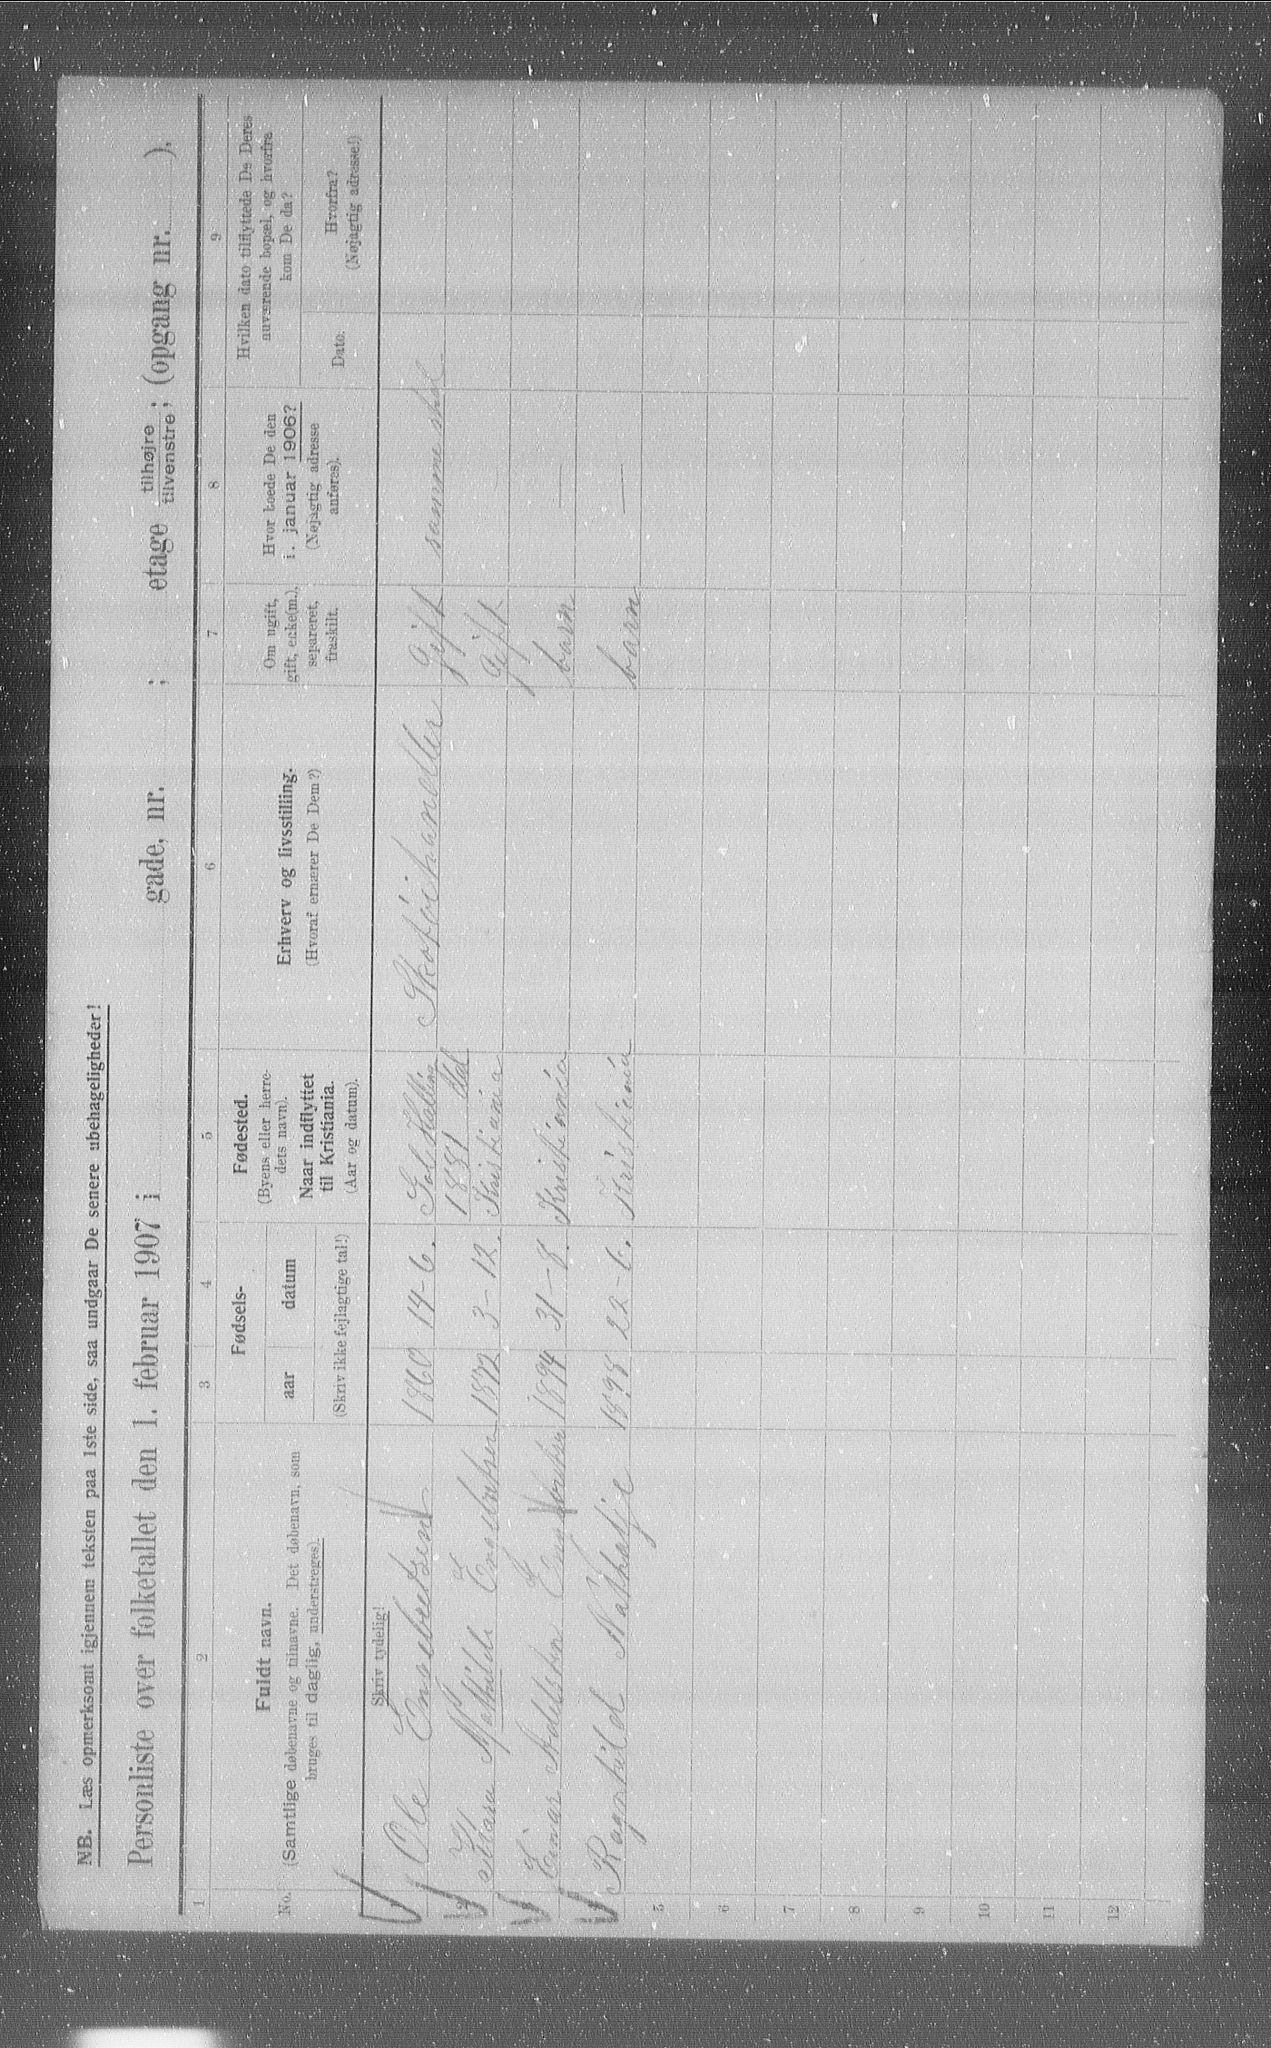 NB. Læs opmerksomt igjennem teksten paa 1ste side, saa undgaar De senere ubehageligheder!
Personliste over folketallet den 1. februar 1907 i gade, nr. ; etage tilhøjre tilvenstre; (opgang nr. ).
1 2 3 4 5 6 7 8 9
No.
Fuldt navn.
(Samtlige døbenavne og tilnavne. Det døbenavn, som
bruges til daglig, understreges).
Fødsels-
aar datum
(Skriv ikke fejlagtige tal!)
Fødested.
(Byens eller herre-
dets navn).
Naar indflyttet
til Kristiania.
(Aar og datum).
Erhverv og livsstilling.
(Hvoraf ernærer De Dem?)
Om ugift,
gift, enke(m.),
separeret,
fraskilt.
Hvor boede De den
1. januar 1906?
(Nøjagtig adresse
anføres).
Hvilken dato tilflyttede De Deres
nuværende bopæl, og hvorfra
kom De da?
Dato.
Hvorfra?
(Nøjagtig adresse!)
Skriv tydelig!
Ole Engebretsen 1860 14-6. Sol Halling Skotöihandler gift samme sted
1881
2 Mathilde Engebretsen 1872 3-12. Kristiania gift
Einar Engebretsen 1894 31-8. Kristiania barn —
Ragnhild Nathalje 1898 22-6. Kristiania barn —
5
6
7
8
9
10
11
12